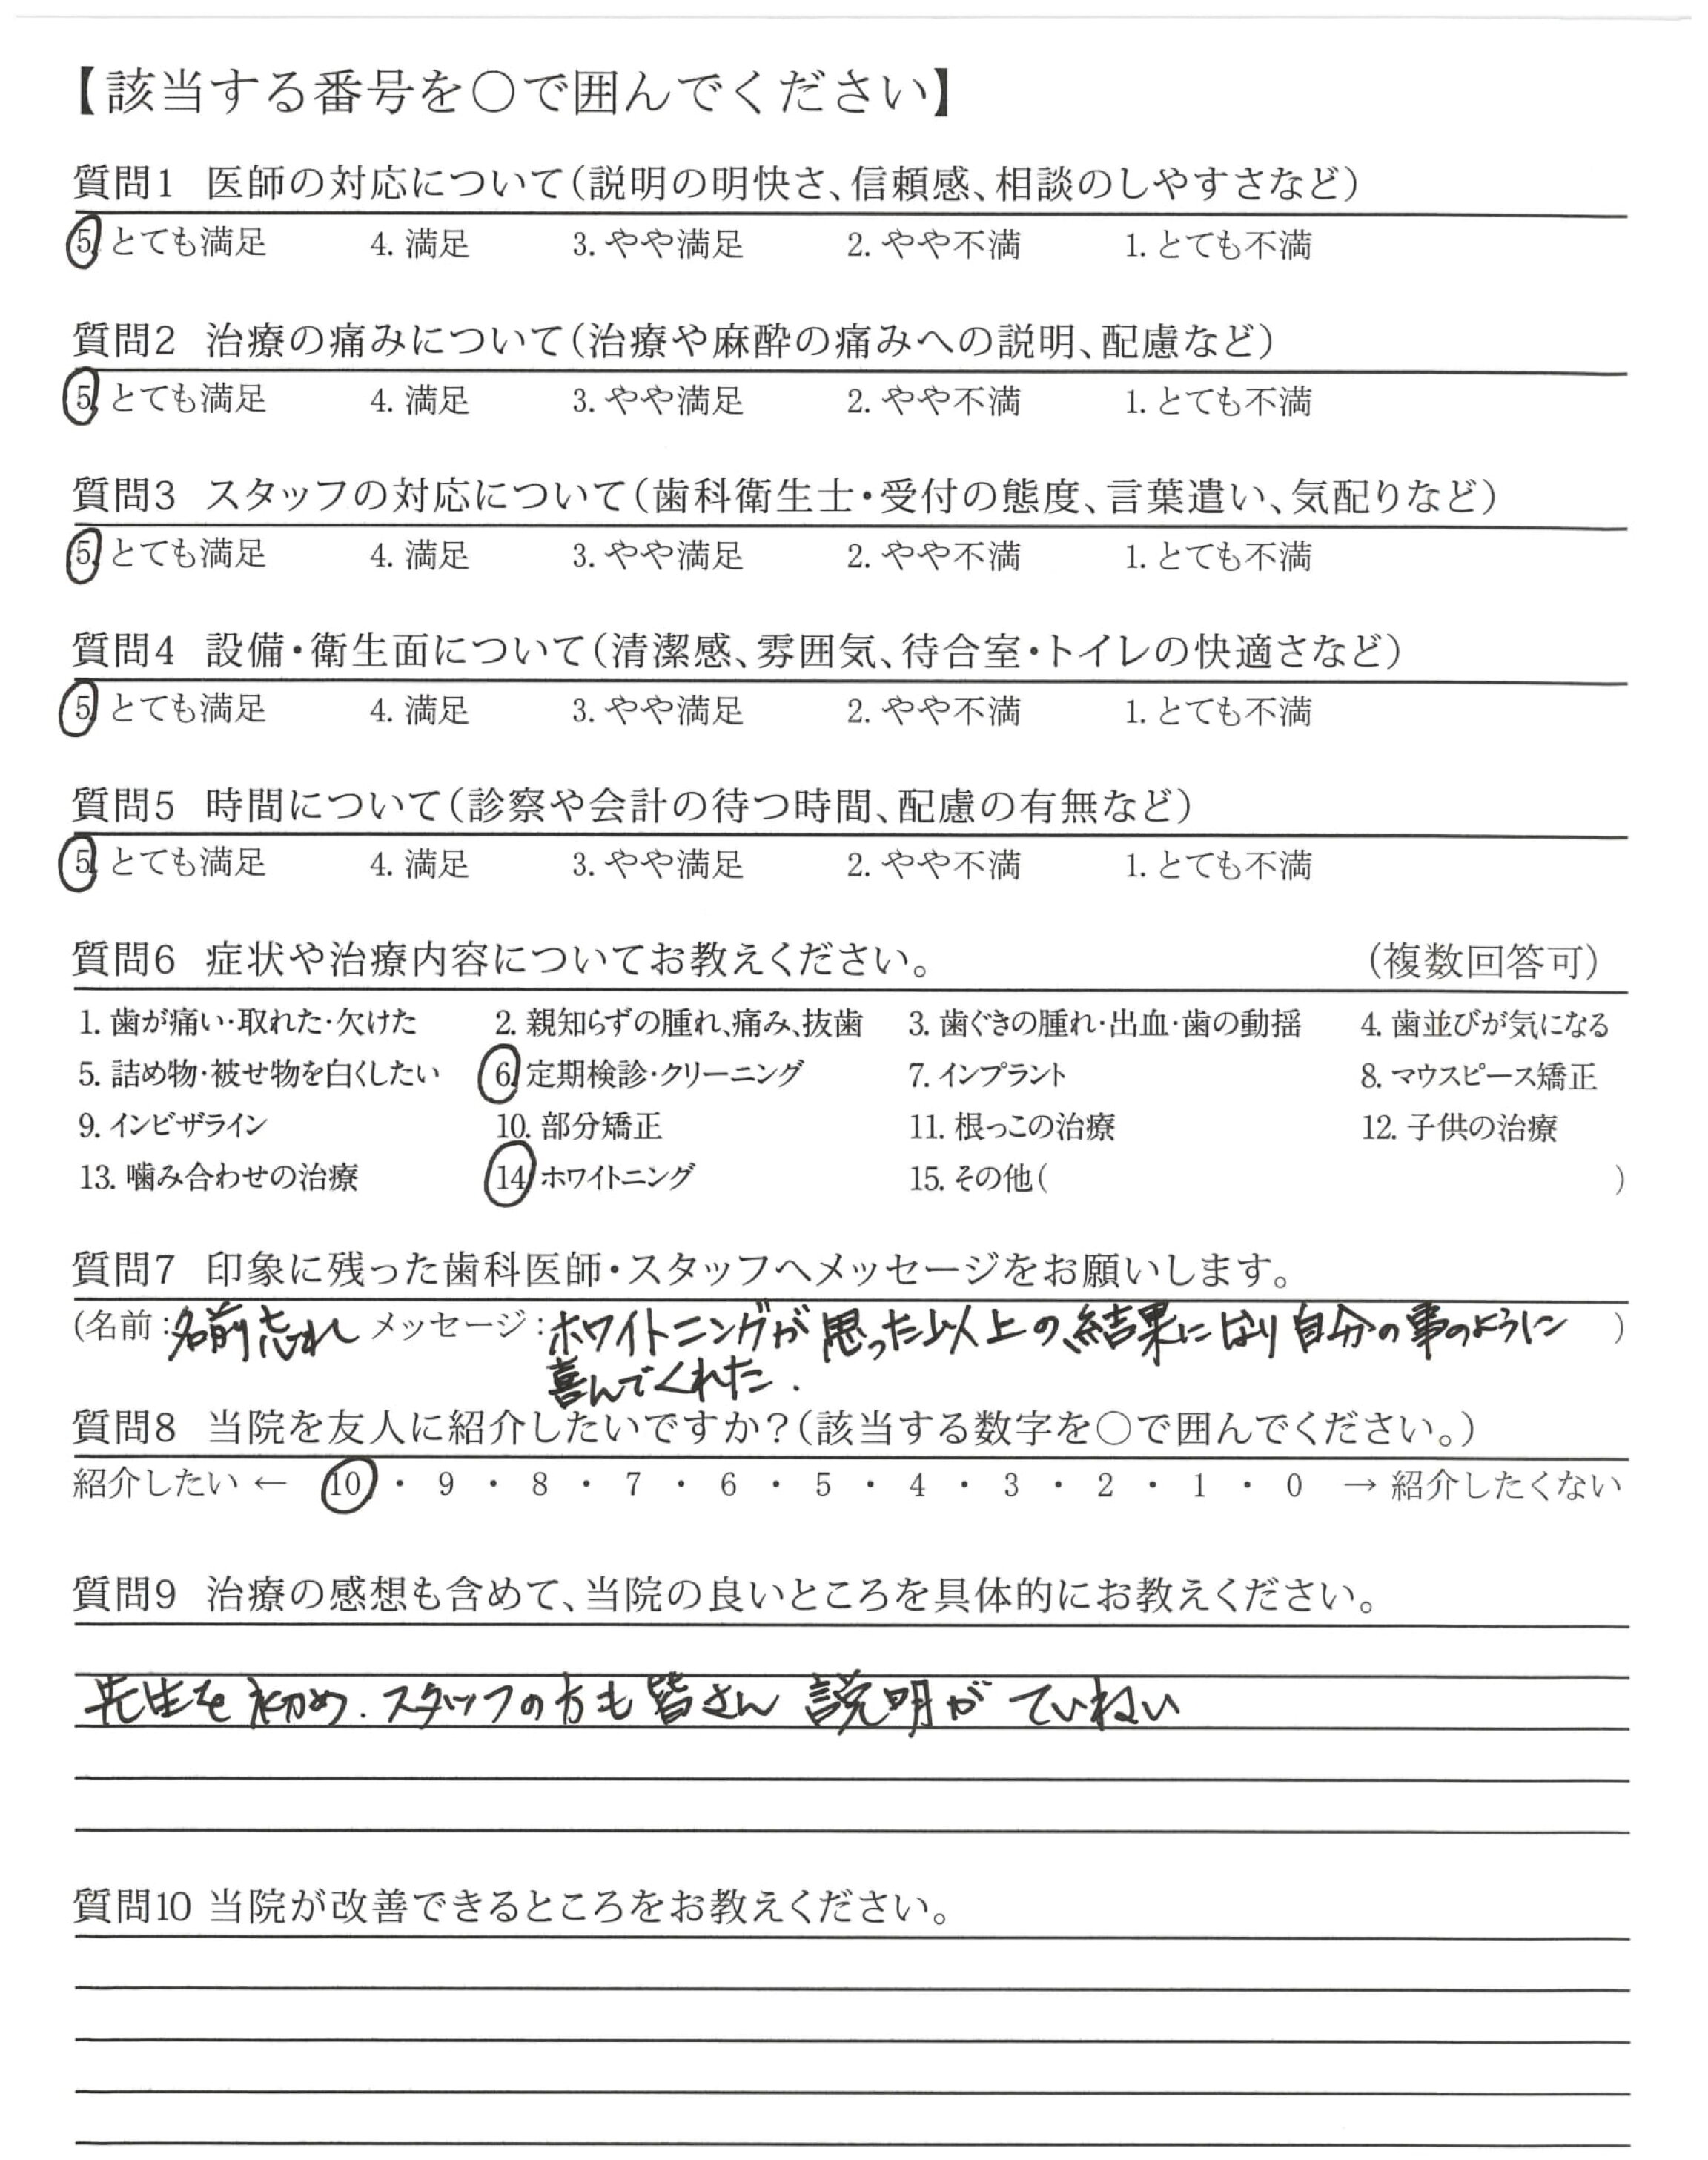 【該当する番号を○で囲んでください】
質問1 医師の対応について(説明の明快さ、信頼感、相談のしやすさなど)
5. とても満足 4. 満足 3. やや満足 2. やや不満 1. とても不満
質問2 治療の痛みについて(治療や麻酔の痛みへの説明、配慮など)
5. とても満足 4. 満足 3. やや満足 2. やや不満 1. とても不満
質問3 スタッフの対応について(歯科衛生士・受付の態度、言葉遣い、気配りなど)
5. とても満足 4. 満足 3. やや満足 2. やや不満 1. とても不満
質問4 設備・衛生面について(清潔感、雰囲気、待合室・トイレの快適さなど)
5. とても満足 4. 満足 3. やや満足 2. やや不満 1. とても不満
質問5 時間について(診察や会計の待つ時間、配慮の有無など)
5. とても満足 4. 満足 3. やや満足 2. やや不満 1. とても不満
質問6 症状や治療内容についてお教えください。 (複数回答可)
1. 歯が痛い・取れた・欠けた 2. 親知らずの腫れ、痛み、抜歯 3. 歯ぐきの腫れ・出血・歯の動揺 4. 歯並びが気になる
5. 詰め物・被せ物を白くしたい 6. 定期検診・クリーニング 7. インプラント 8. マウスピース矯正
9. インビザライン 10. 部分矯正 11. 根っこの治療 12. 子供の治療
13. 噛み合わせの治療 14. ホワイトニング 15. その他( )
質問7 印象に残った歯科医師・スタッフへメッセージをお願いします。
(名前:名前忘れ メッセージ:ホワイトニングが思った以上の結果になり自分の事のように )
喜んでくれた.
質問8 当院を友人に紹介したいですか?(該当する数字を○で囲んでください。)
紹介したい ← 10 ・ 9 ・ 8 ・ 7 ・ 6 ・ 5 ・ 4 ・ 3 ・ 2 ・ 1 ・ 0 → 紹介したくない
質問9 治療の感想も含めて、当院の良いところを具体的にお教えください。
先生を初め.スタッフの方も皆さん 説明が ていねい
質問10 当院が改善できるところをお教えください。